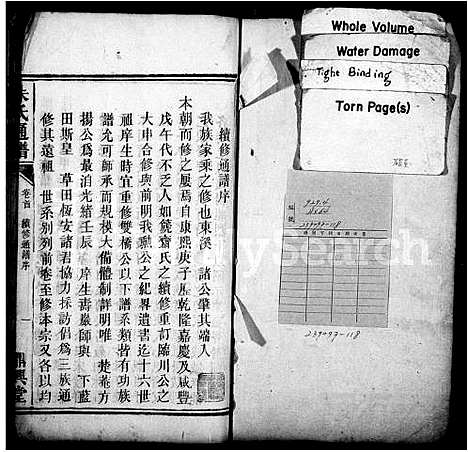 續修通譜序
我族家乘之修也東溪 諸公肇其端入
本朝而修之屢焉自康熙庚子歷乾隆嘉慶及咸豐
戊午代不乏人如鏡齋氏之續修重訂臨川公之
大申合修與前明我公之紀畧遺書迄十六世
祖庠生時宜重修雙橋公以下譜系類皆有功族
譜允可師承而規模大備體制詳明唯 楚菴方
揚公為最泊光緒壬辰 庠生壽嚴師與 下藍
田斯皇 草田恆安諸君協力採訪倡為三族通
修其遠祖 世系別列前卷至修本宗又各以均
氏通譜
卷首 續修通譜序
一
堂
Whole Volume
Water Damage
Tight Binding
Torn Page(s)
929.4
239093-118
239093-118
MySearch